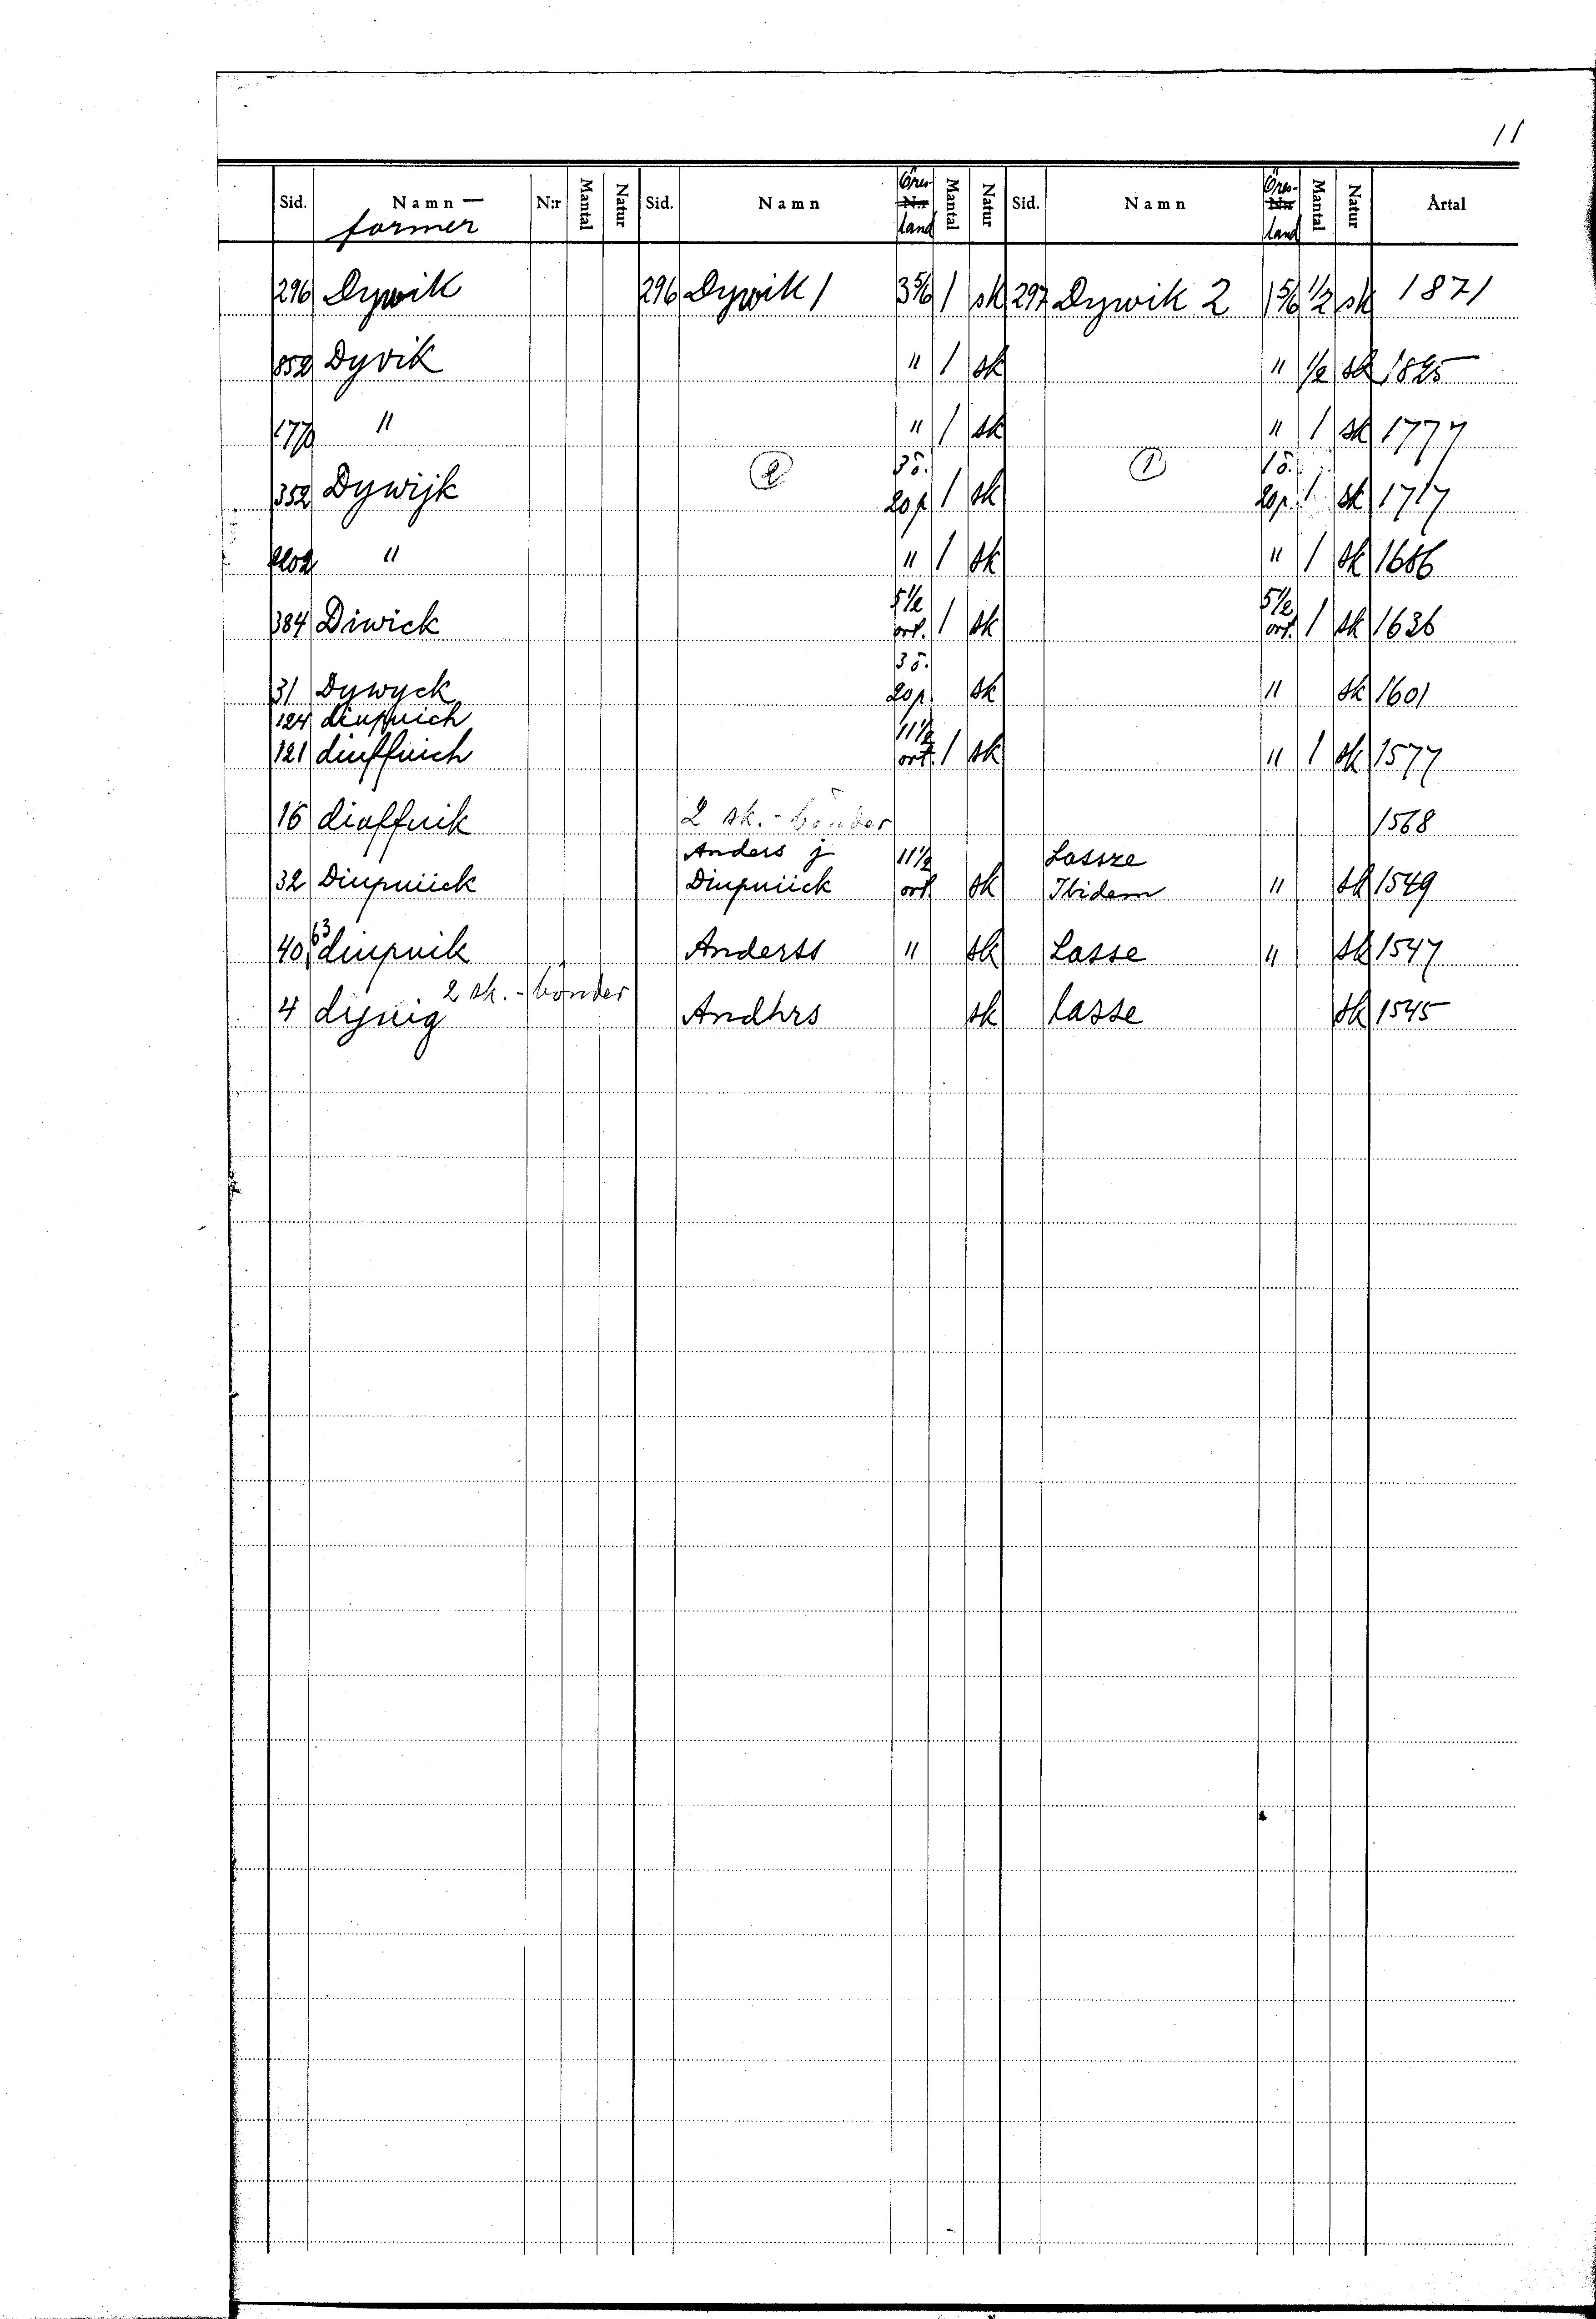 11
Sid. Namn— N:r Mantal Natur Sid. Namn Öres- N:r land Mantal Natur Sid. Namn Öres- N:r land Mantal Natur Årtal
former
296 Dywik 296 Dywik 1 3 5/6 1 sk 297 Dywik 2 1 5/6 1/2 sk 1871
852 Dyvik " 1 sk " 1/2 sk 1825
1770 " " 1 sk " 1 sk 1777
352 Dywijk 2 3 ö. 20 p 1 sk 1 1 ö. 20 p. 1 sk 1717
2202 " " 1 sk " 1 sk 1686
384 Diwick 5 1/2 ort. 1 sk 5 1/2 ort. 1 sk 1636
31 Dywyck 3 ö. 20 p. sk " sk 1601
124 diupuich
121 diuffuich 11 1/2 ort. 1 sk " 1 sk 1577
16 diaffuik 2 sk.-bönder 1568
Anders j Lassze
32 Diupuiick Diupuiick 11 1/2 ort sk Ibidem " sk 1549
40, 63 diupuik Anderss " sk Lasse " sk 1547
2 sk.-bönder
4 dijuig Andhrs sk lasse sk 1545